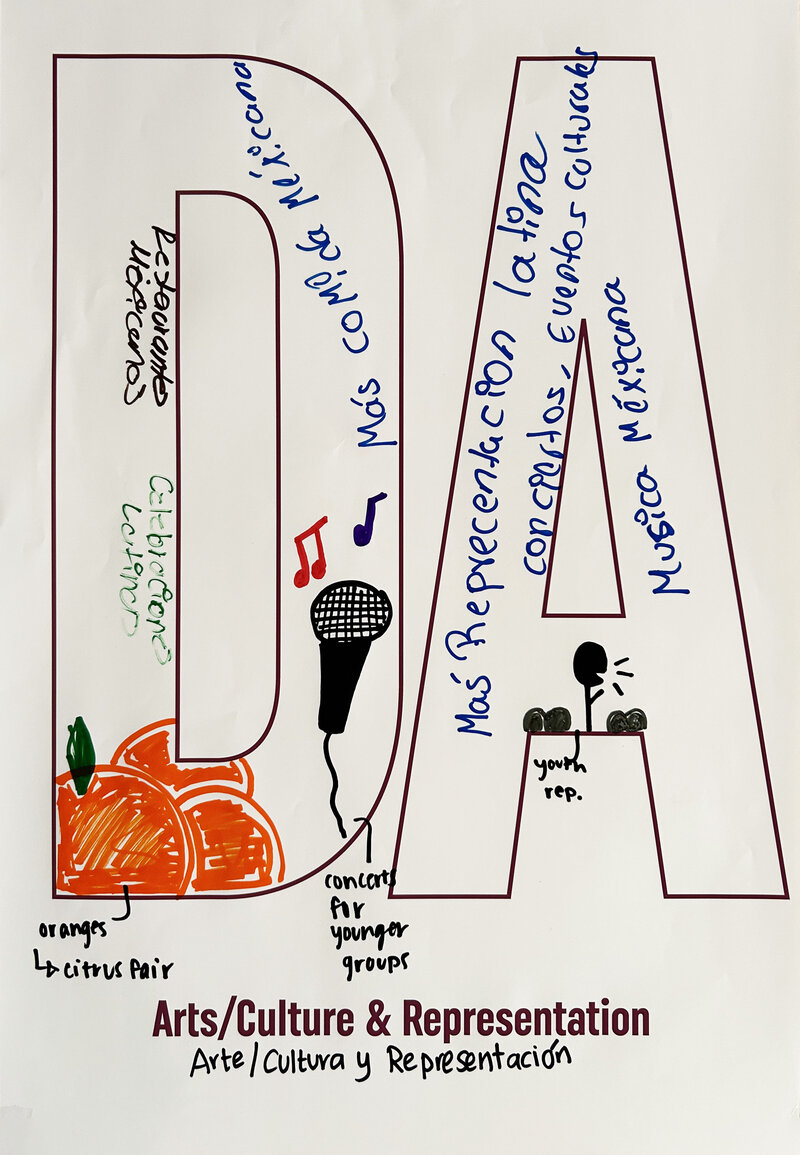 DA
Más comida Méxicana
Restaurantes
Méxicanos
Celebraciones
Latinas
Más Reprecentacion latina
conciertos, Eventos culturales
Musica Méxicana
youth
rep.
oranges
↳ citrus fair
concerts
for
younger
groups
Arts/Culture & Representation
Arte/Cultura y Representación